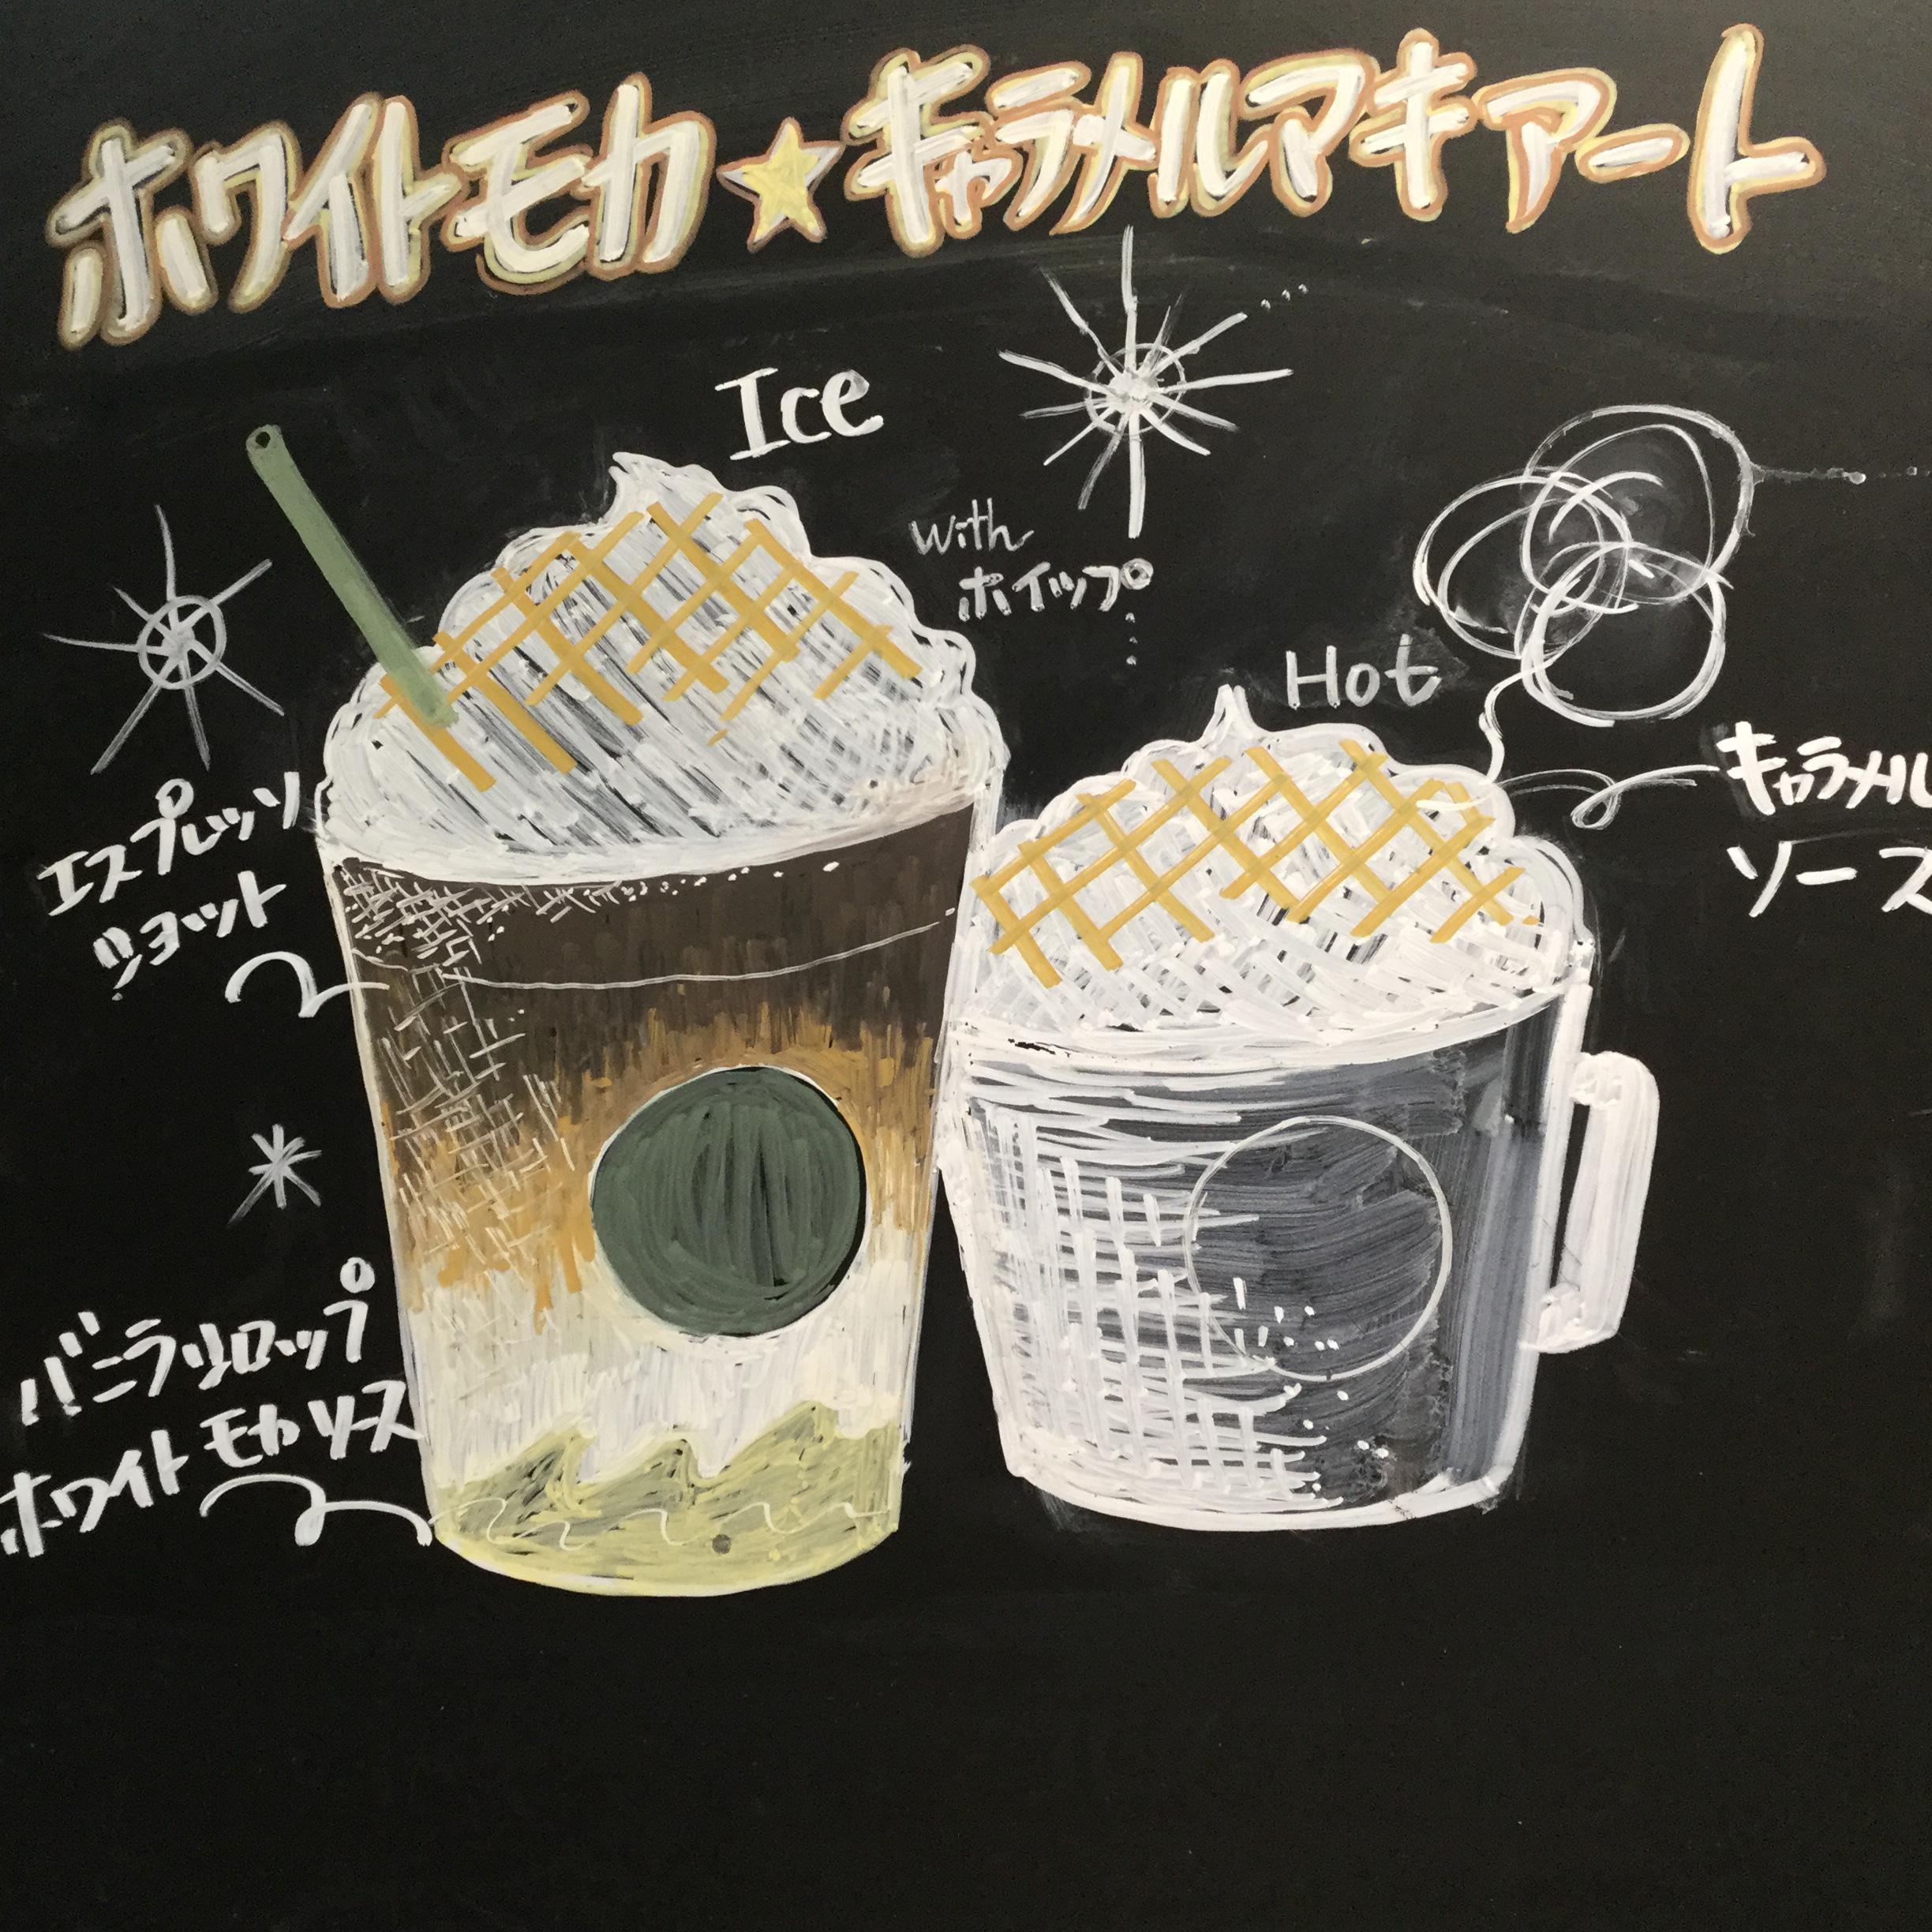 ホワイトモカ★キャラメルマキアート
Ice
with
ホイップ
Hot
キャラメル
ソース
エスプレッソ
ショット
バニラシロップ
ホワイトモカソース